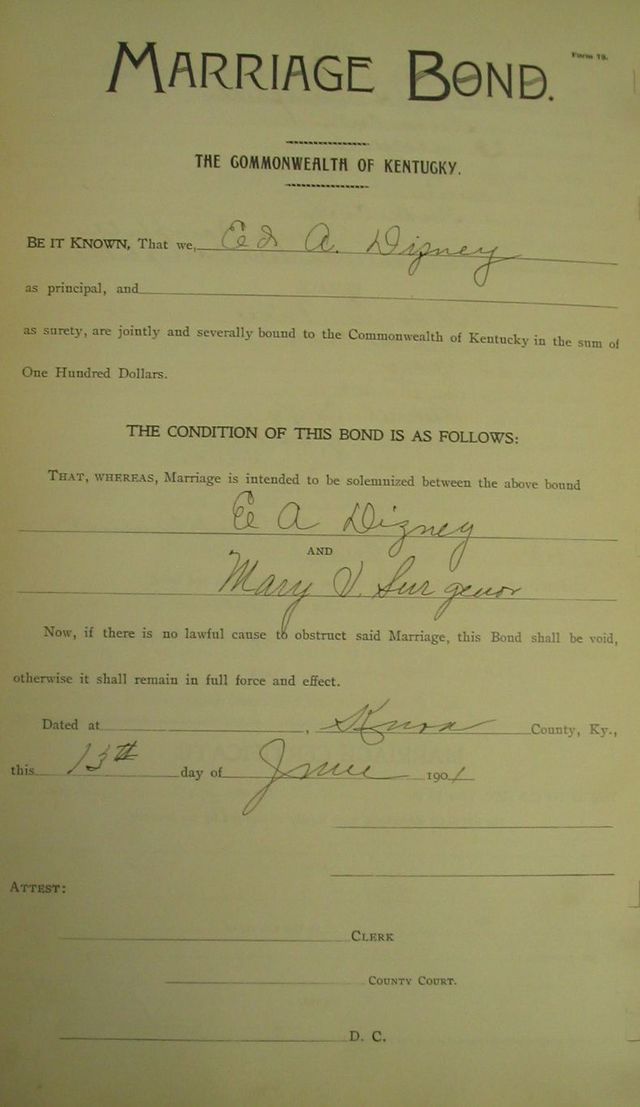 Form 19.
MARRIAGE BOND.
THE COMMONWEALTH OF KENTUCKY.
BE IT KNOWN, That we, Ed A. Dizney
as principal, and
as surety, are jointly and severally bound to the Commonwealth of Kentucky in the sum of
One Hundred Dollars.
THE CONDITION OF THIS BOND IS AS FOLLOWS:
THAT, WHEREAS, Marriage is intended to be solemnized between the above bound
E A Dizney
AND
Mary J. Surgenor
Now, if there is no lawful cause to obstruct said Marriage, this Bond shall be void,
otherwise it shall remain in full force and effect.
Dated at , Knox County, Ky.,
this 13th day of June 1901
ATTEST:
CLERK
COUNTY COURT.
D. C.